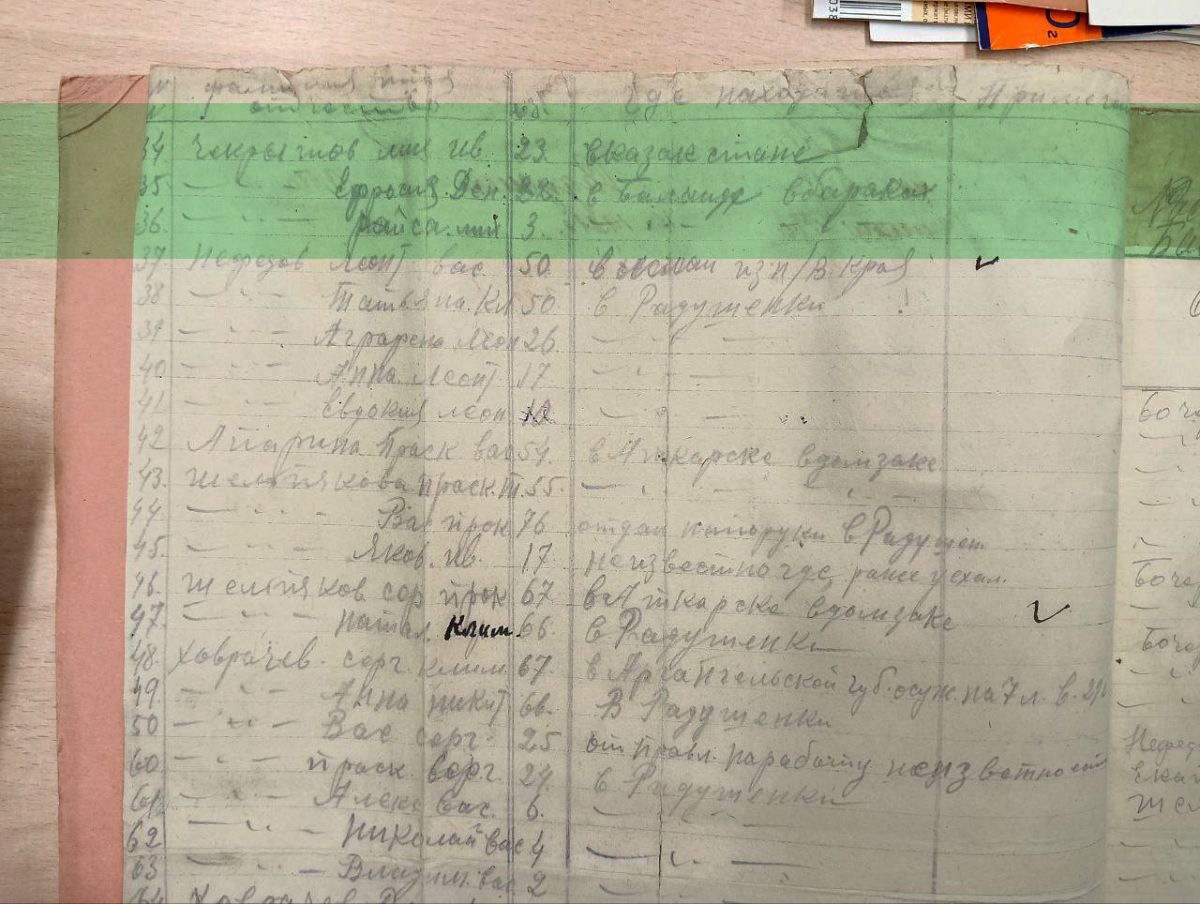 фамилия имя где находится Примеч
отчество
34 Чекрыгин ив. 23. в казакстане
35 — " — Ефросия Ден. 22. в Баланде в бараках
36 — " — райса 3. — " —
37 Нефедов Леонт вас 50 из н/в. края
38 — " — Татьяна. Кл 50. в Радушенки
39 — " — Аграфена Леон 26 — " —
40 — " — Анна Леонт 17 — " —
41 — " — Евдокия леон 12 — " —
42 Апарина Праск вас 54. в Аткарске вдомзаке
43. Шелпякова праск. т. 55. — " —
44 — " — Вас прок 76 отдан напоруки в Радушен
45 — " — Яков. ив. 17 неизвестно где, ранее уехал.
46. Шелпяков сер прок 67 в Аткарске вдомзаке
47 — " — натал. Клим. 66. в Радушенки
48. Ховрачев. серг. клим. 67. в Архангельской губ. осуж. на 7 л. в. 29
49 — " — Анна никит 66. В Радушенки
50 — " — Вас серг. 25 отправл. на работу неизвестно
60 — " — праск. серг. 24. в Радушенки
61 — " — Алекс вас. 6. — " —
62 — " — Николай вас 4 — " —
63 — " — Владим. вас 2 — " —
64 Ховрачев